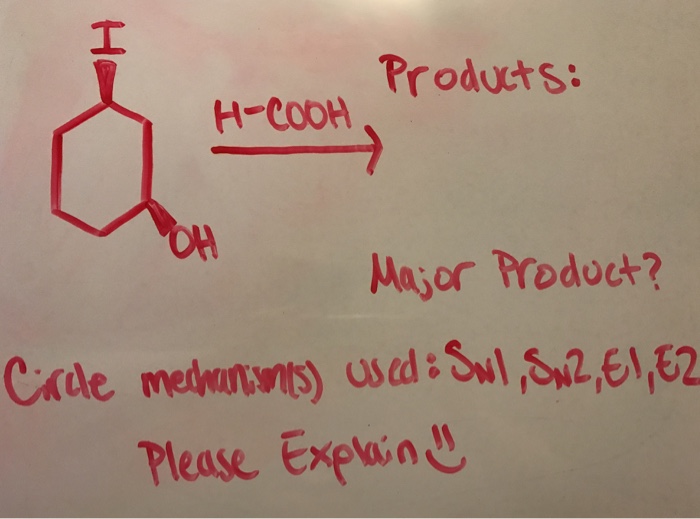 I
H-COOH
Products:
OH
Major Product?
Circle mechanism(s) used: SN1, SN2, E1, E2
Please Explain